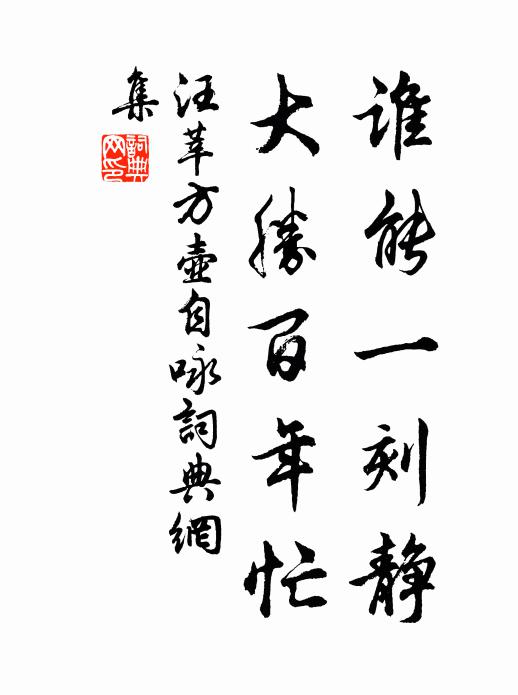 谁能一刻静
大勝百年忙
汪莘方壺自咏詞典網
集
詞典
网印